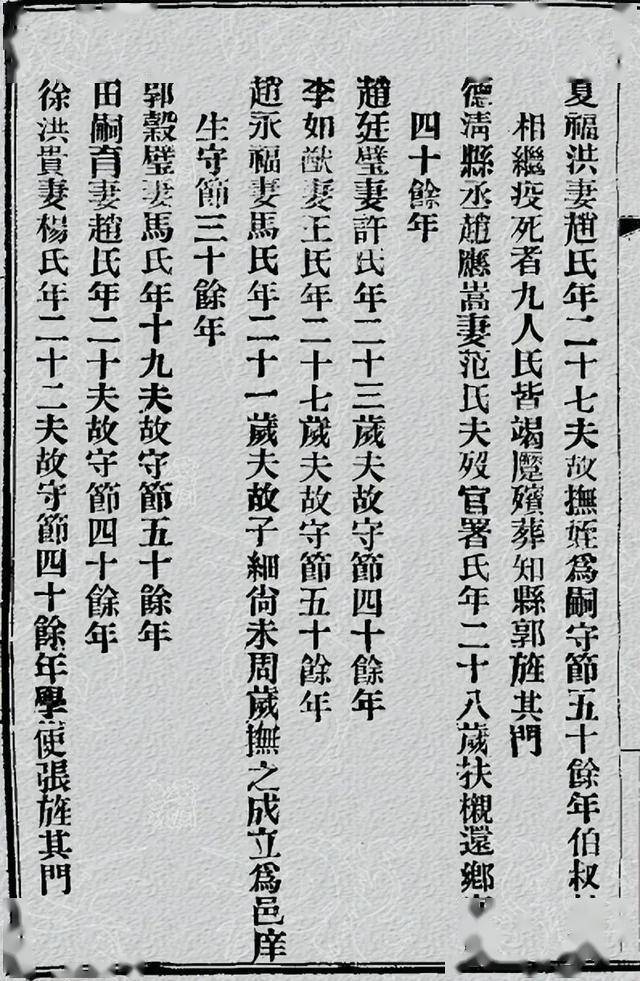 夏福洪妻趙氏年二十七夫故撫姪爲嗣守節五十餘年伯叔
相繼疫死者九人氏皆竭壓殯葬知縣郭旌其門
德淸縣丞趙應嵩妻范氏夫歿官署氏年二十八歲扶櫬還鄉
四十餘年
趙廷璧妻許氏年二十三歲夫故守節四十餘年
李如猷妻王氏年二十七歲夫故守節五十餘年
趙永福妻馬氏年二十一歲夫故子細尙未周歲撫之成立爲邑庠
生守節三十餘年
郭穀璧妻馬氏年十九夫故守節五十餘年
田嗣育妻趙氏年二十夫故守節四十餘年
徐洪貴妻楊氏年二十二夫故守節四十餘年學使張旌其門